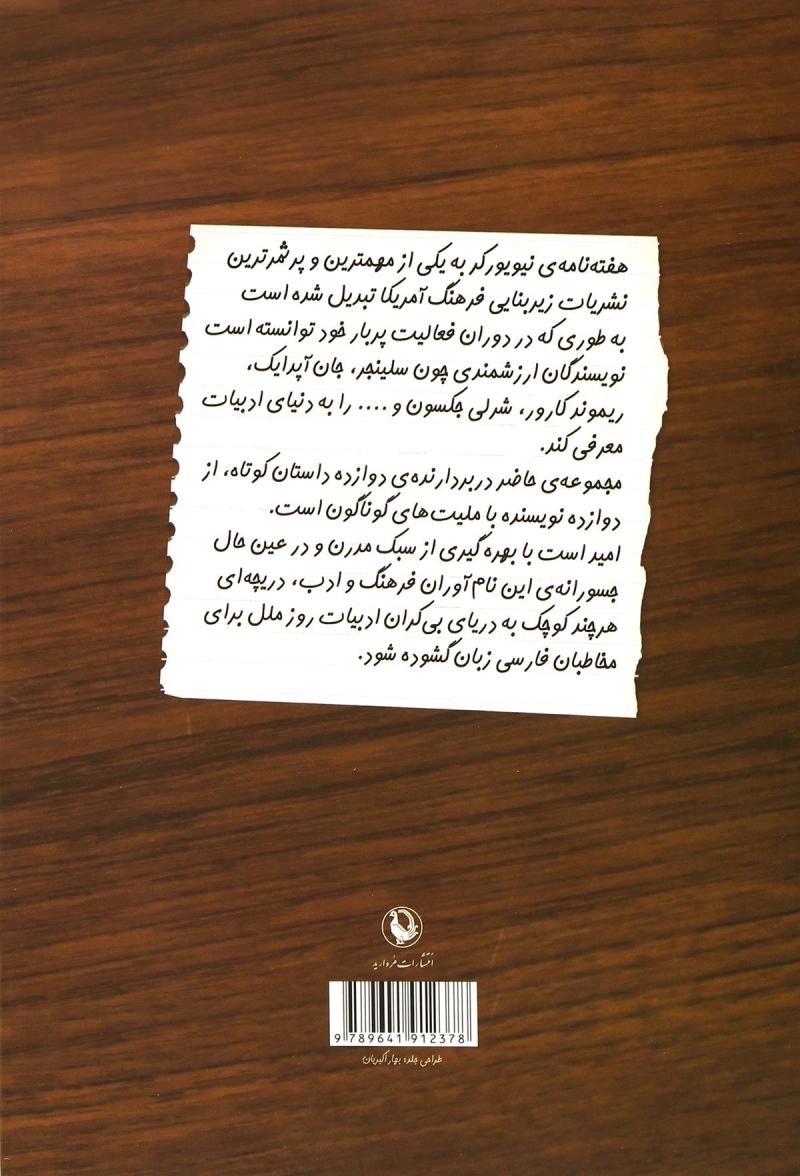 هفته‌نامه‌ی نیویورکر به یکی از مهمترین و پرثمرترین
نشریات زیربنایی فرهنگ آمریکا تبدیل شده است
به طوری که در دوران فعالیت پربار خود توانسته است
نویسندگان ارزشمندی چون سلینجر، جان آپدایک،
ریموند کارور، شرلی جکسون و .... را به دنیای ادبیات
معرفی کند.
مجموعه‌ی حاضر دربردارنده‌ی دوازده داستان کوتاه، از
دوازده نویسنده با ملیت‌های گوناگون است.
امید است با بهره گیری از سبک مدرن و در عین حال
جسورانه‌ی این نام‌آوران فرهنگ و ادب، دریچه‌ای
هرچند کوچک به دریای بی‌کران ادبیات روز ملل برای
مخاطبان فارسی زبان گشوده شود.
انتشارات مروارید
9 789641 912378
طراحی جلد: بهار اکبریان